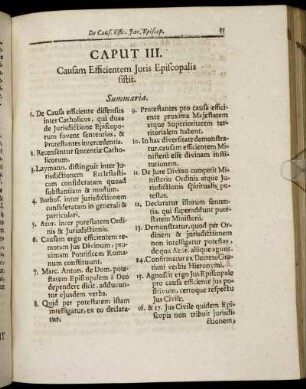 De Caus. Effic. Jur. Episcop.
CAPUT III.
Causam Efficientem Juris Episcopalis
sistit.
Summaria.
1. De Causa efficiente dissensus
inter Catholicos, qui duas
de Jurisdictione Episcopo-
rum fovent sententias, &
Protestantes intercedentis.
2. Recensentur sententiæ Catho-
licorum.
3. Laymann. distinguit inter Ju-
risdictionem Ecclesiasti-
cam consideratam quoad
substantiam & modum.
4. Barbos. inter jurisdictionem
consideratam in generali &
particulari,
5. Azor. inter potestatem Ordi-
nis & Jurisdictionis.
6. Causam ergo efficientem re-
motam Jus Divinum; pro-
ximam Pontificem Roma-
num constituunt.
7. Marc. Anton. de Dom. pote-
statem Episcopalem à Deo
dependere dicit, adducun-
tur ejusdem verba.
8. Quid per potestatem istam
intelligatur, ex eo declara-
tur.
9. Protestantes pro causa effici-
ente proxima Majestatem
atque Superioritatem ter-
ritorialem habent.
10. In hac diversitate demonstra-
tur, causam efficientem Mi-
nisterii esse divinam insti-
tutionem.
11. De Jure Divino competit Mi-
nisterio Ordinis atque Ju-
risdictionis spiritualis po-
testas.
12. Declaratur illorum senten-
tia, qui superaddunt pote-
statem Ministerii.
13. Demonstratur, quod per Or-
dinem & jurisdictionem
non intelligatur potestas
de qua Azor. aliique agunt.
14. Confirmatur ex Decreto Gra-
tiani verbis Hieronymi.
15. Agnoscit ergo Jus Episcopale
pro causa efficiente Jus po-
sitivum, certoque respectu
Jus Civile.
16. & 17. Jus Civile quidem Epi-
scopis non tribuit jurisdi-
ctionem,